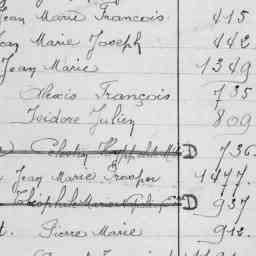 Jean Marie François 415
Jean Marie Joseph 442
Jean Marie 1349
Alexis François 735
Isidore Julien 809
Célestin Hippolyte D 736
Jean Marie Prosper 1477
Théophile Marie D 937
Pierre Marie 912